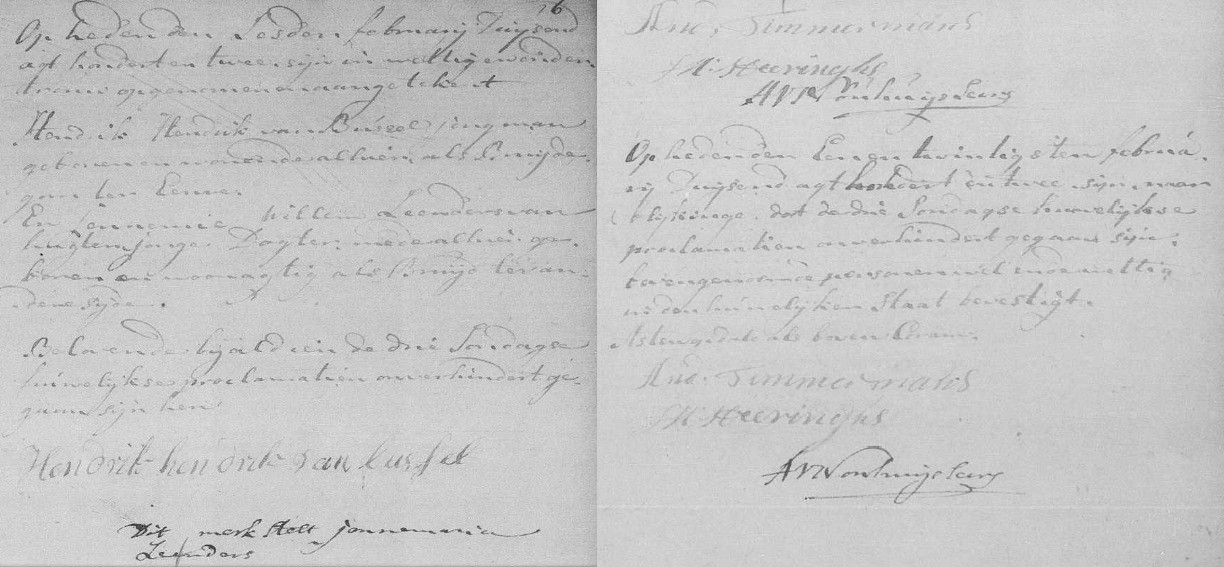 16
Op heden den Sesden februarij Duijsend
agt hondert en twee sijn in wettig e onder
trouw opgenomen en aangetekent
Hendrik Hendrik van Bussel jongman
geboren en wonende alhier, als Bruijde-
gom ter Eenre.
En Jennemie Willem Leenders van
jonge Dogter, mede alhier ge-
boren en woonagtig als Bruijd ter an-
dere syde.
Belovende bij aldien de drie Sondagse
huwelijkse proclamatien onverhindert ge-
gaan sijn hen
Hendrik hendrik van bussel
Dit merk stelt jennemaria
Leenders
And. Timmermans
H: Heeringhs
Op heden den Eenen twintigsten februa-
rij Duijsend agt hondert en twee sijn, naar
blykinge, dat de drie Sondagse huwelijkse
proclamatien onverhindert gegaan sijn,
bovengenoemde personen wel ende wettig
in den huwelijken Staat bevestigt.
Asten qudato als boven Coram.
And. Timmermans
H: Heeringhs